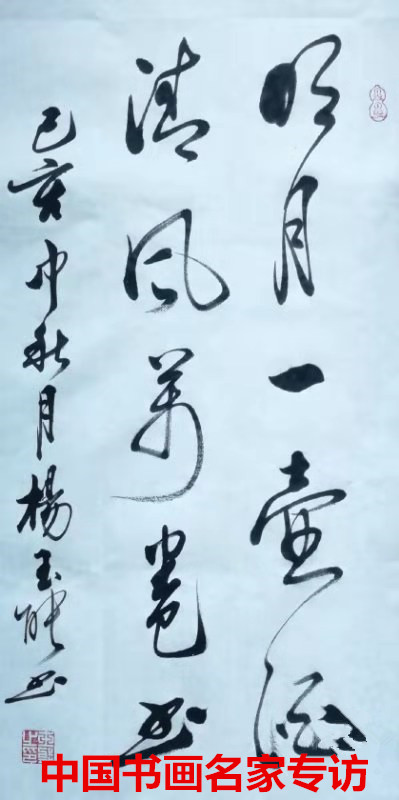 明月一壶酒
清风万卷书
己亥中秋月杨玉能书
中国书画名家专访